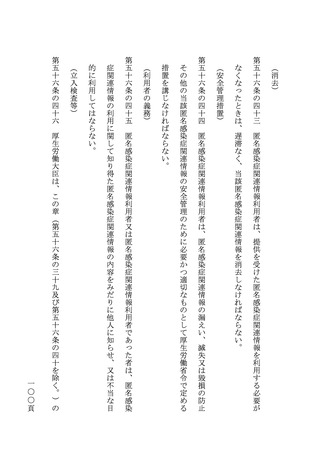 （消去）
第五十六条の四十三　匿名感染症関連情報利用者は、提供を受けた匿名感染症関連情報を利用する必要が
なくなったときは、遅滞なく、当該匿名感染症関連情報を消去しなければならない。
（安全管理措置）
第五十六条の四十四　匿名感染症関連情報利用者は、匿名感染症関連情報の漏えい、滅失又は毀損の防止
その他の当該匿名感染症関連情報の安全管理のために必要かつ適切なものとして厚生労働省令で定める
措置を講じなければならない。
（利用者の義務）
第五十六条の四十五　匿名感染症関連情報利用者又は匿名感染症関連情報利用者であった者は、匿名感染
症関連情報の利用に関して知り得た匿名感染症関連情報の内容をみだりに他人に知らせ、又は不当な目
的に利用してはならない。
（立入検査等）
第五十六条の四十六　厚生労働大臣は、この章（第五十六条の三十九及び第五十六条の四十を除く。）の
一〇〇頁